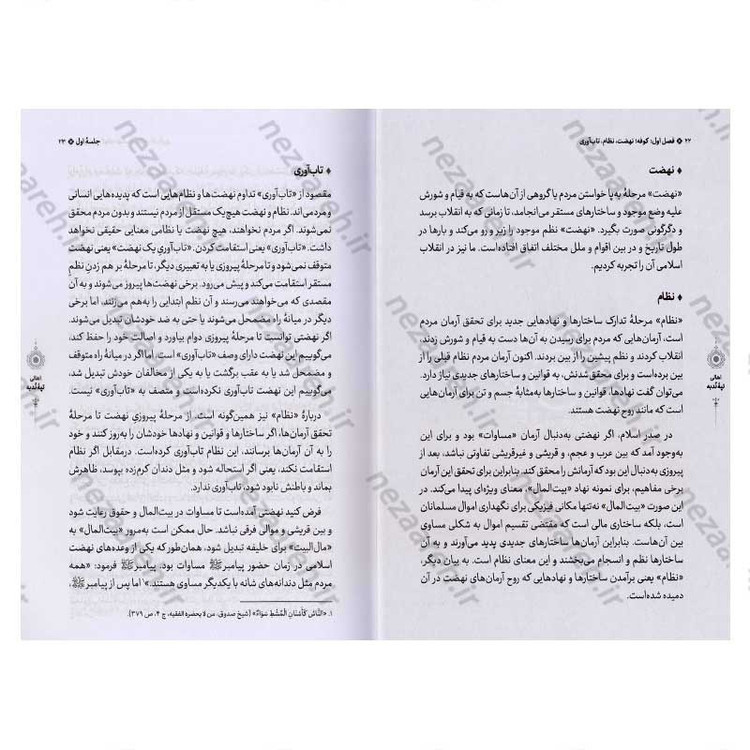 ۲۲ فصل اول: کوفه؛ نهضت، نظام، تاب‌آوری
نهضت
«نهضت» مرحلهٔ به پا خواستن مردم یا گروهی از آن‌هاست که به قیام و شورش
علیه وضع موجود و ساختارهای مستقر می‌انجامد، تا زمانی که به انقلاب برسد
و دگرگونی صورت بگیرد. «نهضت» نظم موجود را زیر و رو می‌کند و بارها در
طول تاریخ و در بین اقوام و ملل مختلف اتفاق افتاده‌است. ما نیز در انقلاب
اسلامی آن را تجربه کردیم.
نظام
«نظام» مرحلهٔ تدارک ساختارها و نهادهایی جدید برای تحقق آرمان مردم
است، آرمان‌هایی که مردم برای رسیدن به آن‌ها دست به قیام و شورش زدند،
انقلاب کردند و نظم پیشین را از بین بردند. اکنون آرمان مردم نظام قبلی را از
بین برده‌است و برای محقق شدنش، به قوانین و ساختارهای جدیدی نیاز دارد.
می‌توان گفت نهادها، ساختارها به‌مثابهٔ جسم و تن برای آرمان‌هایی
است که مانند روح نهضت هستند.
در صدر اسلام، اگر نهضتی به‌دنبال آرمان «مساوات» بود و برای این
به‌وجود آمد که بین عرب و عجم، و قریشی و غیرقریشی تفاوتی نباشد، بعد از
پیروزی به‌دنبال این بود که آرمانش را محقق کند. بنابراین برای تحقق این آرمان
برخی مفاهیم، برای نمونه نهاد «بیت‌المال»، معنای ویژه‌ای پیدا می‌کند. در
این صورت «بیت‌المال» نه‌تنها مکانی فیزیکی برای نگهداری اموال مسلمانان
است، بلکه ساختاری مالی است که مقتضی تقسیم اموال به شکلی مساوی
بین آن‌هاست. بنابراین آرمان‌ها ساختارهای جدیدی پدید می‌آورند و به آن
ساختارها نظم و انسجام می‌بخشند و این معنای نظام است. به بیان دیگر،
«نظام» یعنی برآمدن ساختارها و نهادهایی که روح آرمان‌های نهضت در آن
دمیده شده‌است.
اهالی
جلسهٔ اول ۲۳
تاب‌آوری
مقصود از «تاب‌آوری» تداوم نهضت‌ها و نظام‌هایی است که پدیده‌هایی انسانی
و مردمی‌اند. نظام و نهضت هیچ‌یک مستقل از مردم نیستند و بدون مردم محقق
نمی‌شوند. اگر مردم نخواهند، هیچ نهضت یا نظامی معنایی حقیقی نخواهد
داشت. «تاب‌آوری» یعنی استقامت کردن. «تاب‌آوریِ یک نهضت» یعنی نهضت
متوقف نمی‌شود و تا مرحلهٔ پیروزی یا به تعبیری دیگر، تا مرحلهٔ بر هم زدنِ نظم
مستقر استقامت می‌کند و پیش می‌رود. برخی نهضت‌ها پیروز می‌شوند و به آن
مقصدی که می‌خواهند می‌رسند و آن نظم ابتدایی را به‌هم می‌زنند، اما برخی
دیگر در میانهٔ راه مضمحل می‌شوند یا حتی به ضد خودشان تبدیل می‌شوند.
اگر نهضتی توانست تا مرحلهٔ پیروزی دوام بیاورد و اصالت خود را حفظ کند،
می‌گوییم این نهضت دارای وصف «تاب‌آوری» است. اما اگر در میانهٔ راه متوقف
و مضمحل شد یا به عقب برگشت یا به یکی از مخالفان خودش تبدیل شد،
می‌گوییم این نهضت تاب‌آوری نکرده‌است و متصف به «تاب‌آوری» نیست.
دربارهٔ «نظام» نیز همین‌گونه است. از مرحلهٔ پیروزی نهضت تا مرحلهٔ
تحقق آرمان‌ها، اگر ساختارها و قوانین و نهادها خودشان را به‌روز کنند و خود
را به آن آرمان‌ها برسانند، این نظام تاب‌آوری کرده‌است. درمقابل اگر نظام
استقامت نکند، یعنی اگر استحاله شود و مثل دندان کرم‌زده بپوسد، ظاهرش
بماند و باطنش نابود شود، تاب‌آوری ندارد.
فرض کنید نهضتی آمده‌است تا مساوات در بیت‌المال و حقوق رعایت شود
و بین قریشی و موالی فرقی نباشد. حال ممکن است به‌مرور «بیت‌المال» به
«مال‌البیت» برای خلیفه تبدیل شود، همان‌طور که یکی از وعده‌های نهضت
اسلامی در زمان حضور پیامبر ﷺ مساوات بود. پیامبر ﷺ فرمود: «همه
مردم مثل دندانه‌های شانه با یکدیگر مساوی هستند.»۱ اما پس از پیامبر ﷺ،
۱. «النّاسُ کَأَسْنانِ المُشْطِ سَواءٌ» (شیخ صدوق، من لا یحضره الفقیه، ج ۴، ص ۳۷۹).
اهالی
nezaareh.ir